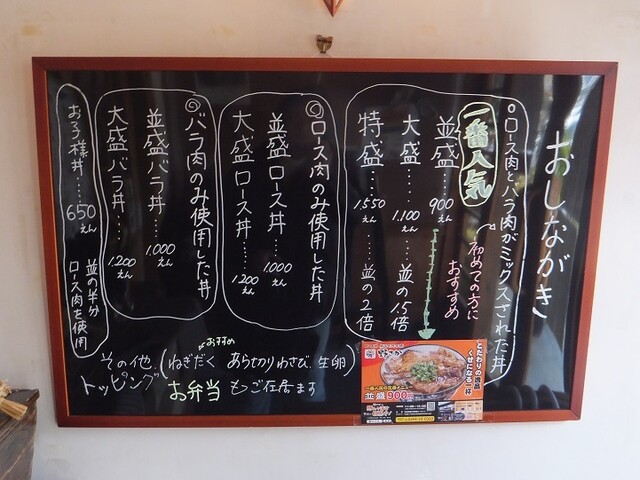 おしながき
○ロース肉とバラ肉がミックスされた丼
一番人気
初めての方に
おすすめ
並盛・・・・900えん
大盛・・・・1,100えん・・・・並の1.5倍
特盛・・・・1,550えん・・・・並の2倍
◎ロース肉のみ使用した丼
並盛ロース丼・・・1,000えん
大盛ロース丼・・・1,200えん
◎バラ肉のみ使用した丼
並盛バラ丼・・・1,000えん
大盛バラ丼・・・1,200えん
お子様丼・・・・650えん
並の半分
ロース肉を使用
その他
トッピング
おすすめ
(ねぎだく あら切りわさび、生卵)
お弁当もご在居ます
こだわりの豚丼
くせになる一杯
一番人気の定番メニュー
並盛900円